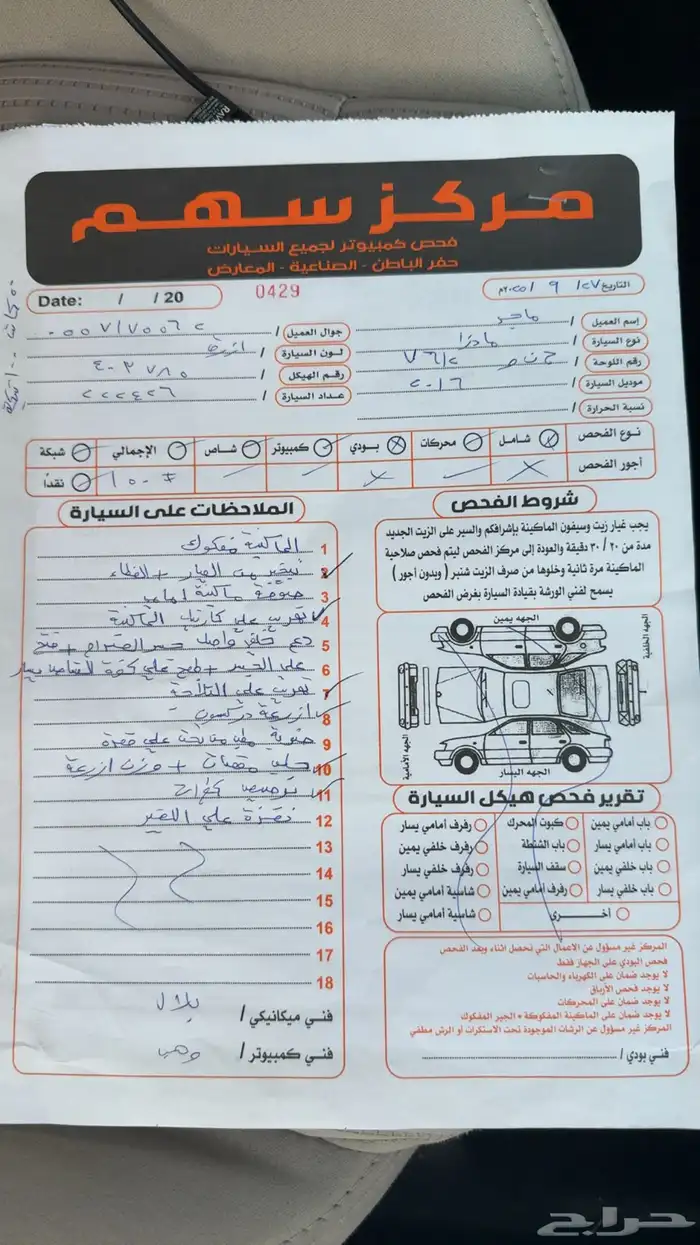 مركز سهم
فحص كمبيوتر لجميع السيارات
حفر الباطن - الصناعية - المعارض
Date: / / 20
0429
التاريخ ٢٧ / ٩ / ٢٠٢٥م
إسم العميل / ماجد
جوال العميل /
نوع السيارة / مازدا
لون السيارة / ازرق
رقم اللوحة / ح ن ص ٧٦١٢
رقم الهيكل / ٤٠٣٧٨٥
موديل السيارة / ٢٠١٦
عداد السيارة / ٢٢٢٤٢٦
نسبة الحرارة /
نوع الفحص شامل محركات بودي كمبيوتر شاص الإجمالي شبكة
أجور الفحص ١٥٠ نقداً
شروط الفحص
يجب غيار زيت وسيفون الماكينة بإشرافكم والسير على الزيت الجديد
مدة من ٢٠ / ٣٠ دقيقة والعودة إلى مركز الفحص ليتم فحص صلاحية
الماكينة مرة ثانية وخلوها من صرف الزيت شنبر ( وبدون أجور )
يسمح لفني الورشة بقيادة السيارة بغرض الفحص
الجهه يمين
الجهه الخلفية
الجهه الأمامية
الجهه اليسار
تقرير فحص هيكل السيارة
باب أمامي يمين كبوت المحرك رفرف أمامي يسار
باب أمامي يسار باب الشنطة رفرف خلفي يمين
باب خلفي يمين سقف السيارة رفرف خلفي يسار
باب خلفي يسار رفرف أمامي يمين شاسية أمامي يمين
أخـــرى شاسية أمامي يسار
المركز غير مسؤول عن الاعمال التي تحصل اثناء وبعد الفحص
فحص البودي على الجهاز فقط
لا يوجد ضمان على الكهرباء والحاسيات
لا يوجد فحص الأرباق
لا يوجد ضمان على المحركات
لا يوجد ضمان على الماكينة المفكوكة + الجير المفكوك
المركز غير مسؤول عن الرشات الموجودة تحت الاستكرات أو الرش مطفي
فني بودي /
الملاحظات على السيارة
1 الماكينة مفكوك
2 تنقير من الغيار + الغطاء
3 ماكينة امامي
4 تهريب على كارتيل الماكينة
5 دعم خلفي
6 على الجير +
7 تهريب على الثلاجة
8 اذرعة دركسون
9
10 جلب مقصات + وزن اذرعة
11 ترصيص كفرات
12
13
14
15
16
17
18
فني ميكانيكي / بلال
فني كمبيوتر /
حراج